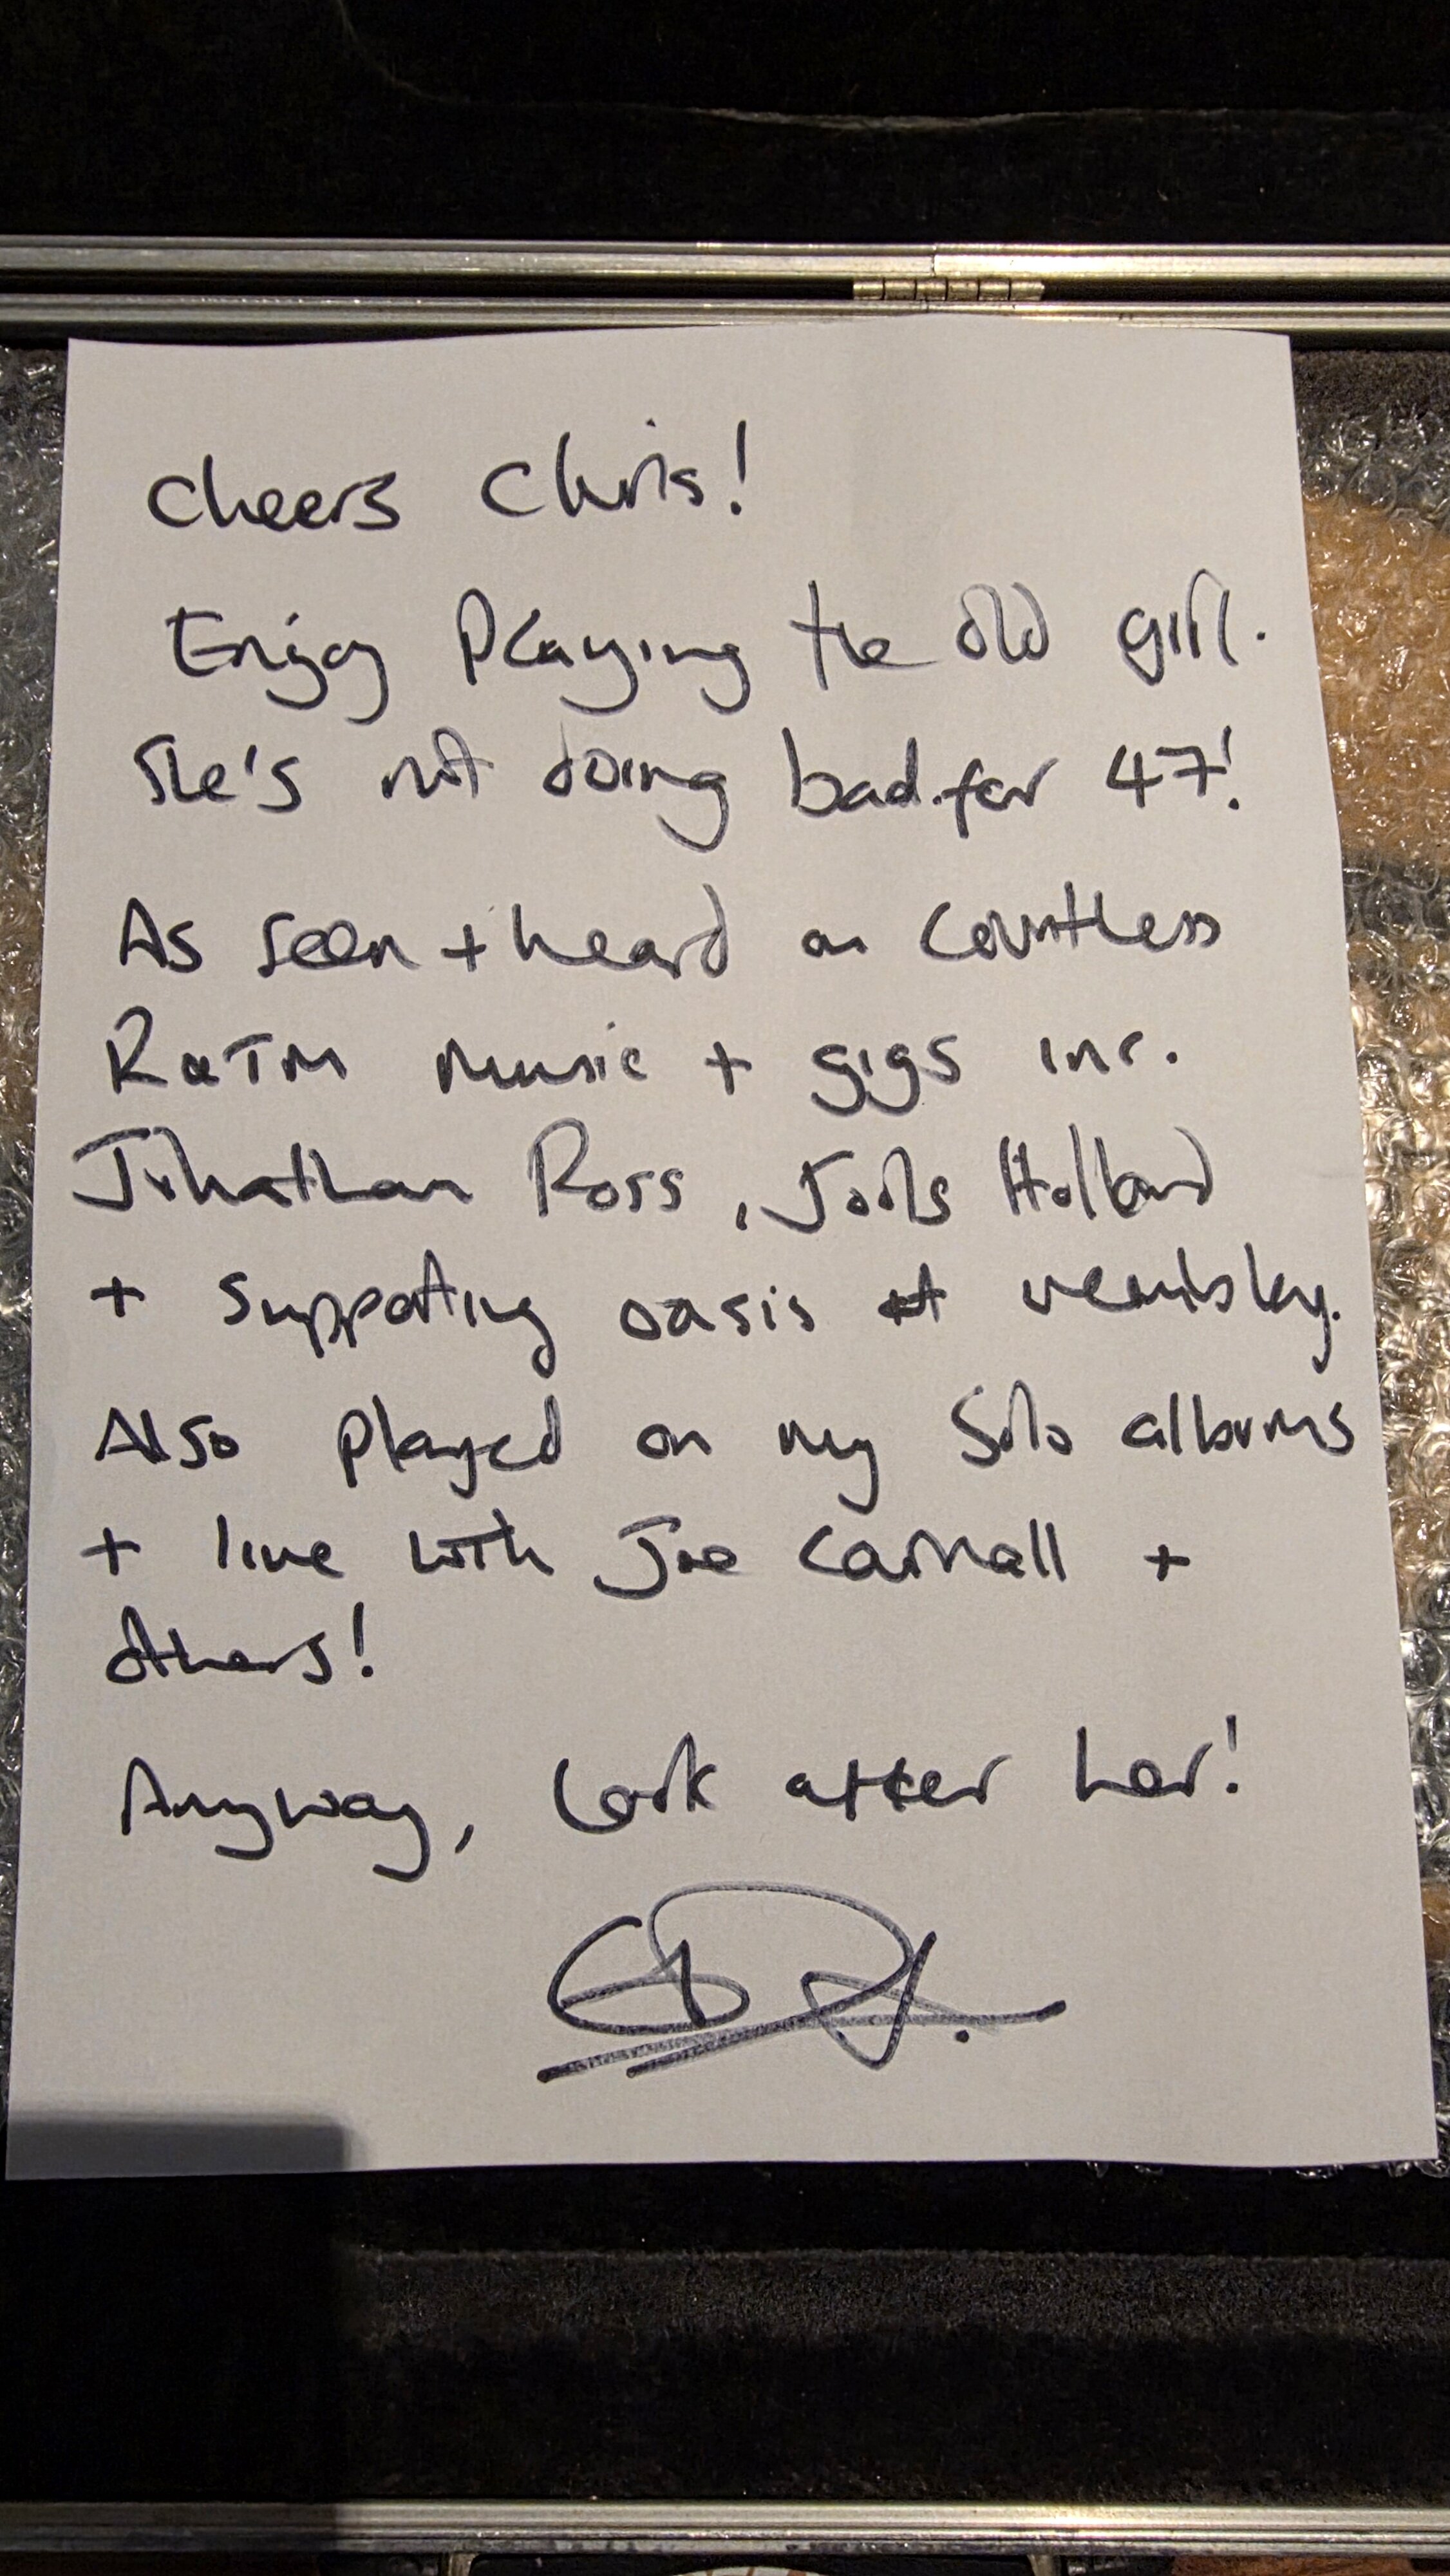 Cheers Chris!
Enjoy Playing the old girl.
She's not doing bad for 47!
As seen + heard on countless
RATM music + gigs inc.
Jonathan Ross, Jools Holland
+ supporting oasis at wembley.
Also played on my Solo albums
+ live with Joe Carnall +
others!
Anyway, look after her!